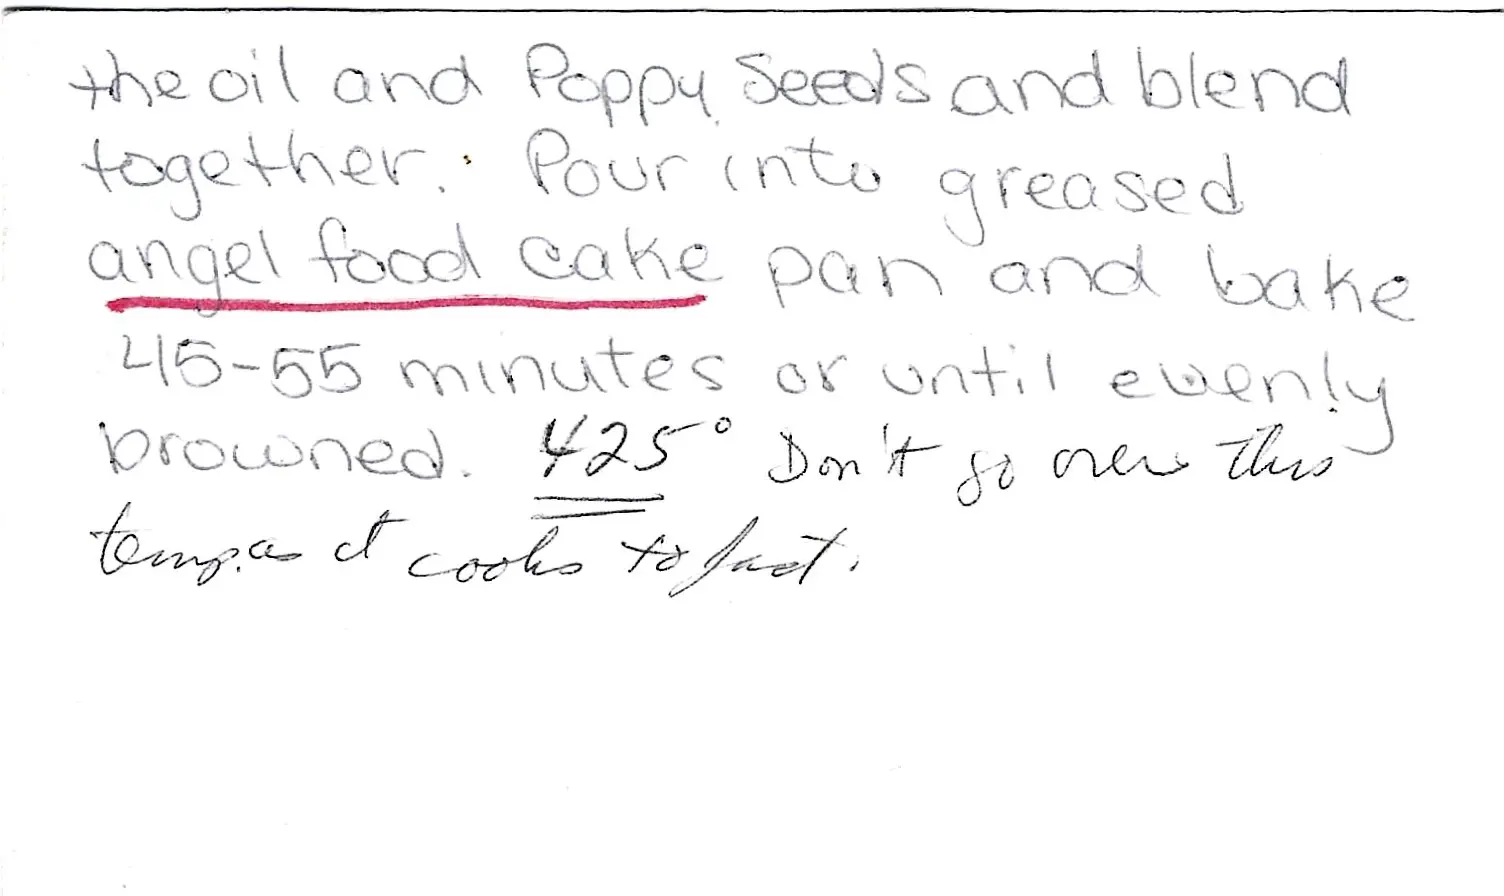 the oil and Poppy Seeds and blend
together. Pour into greased
angel food cake pan and bake
45-55 minutes or until evenly
browned. 425° Don't go over this
temp. as it cooks to fast.